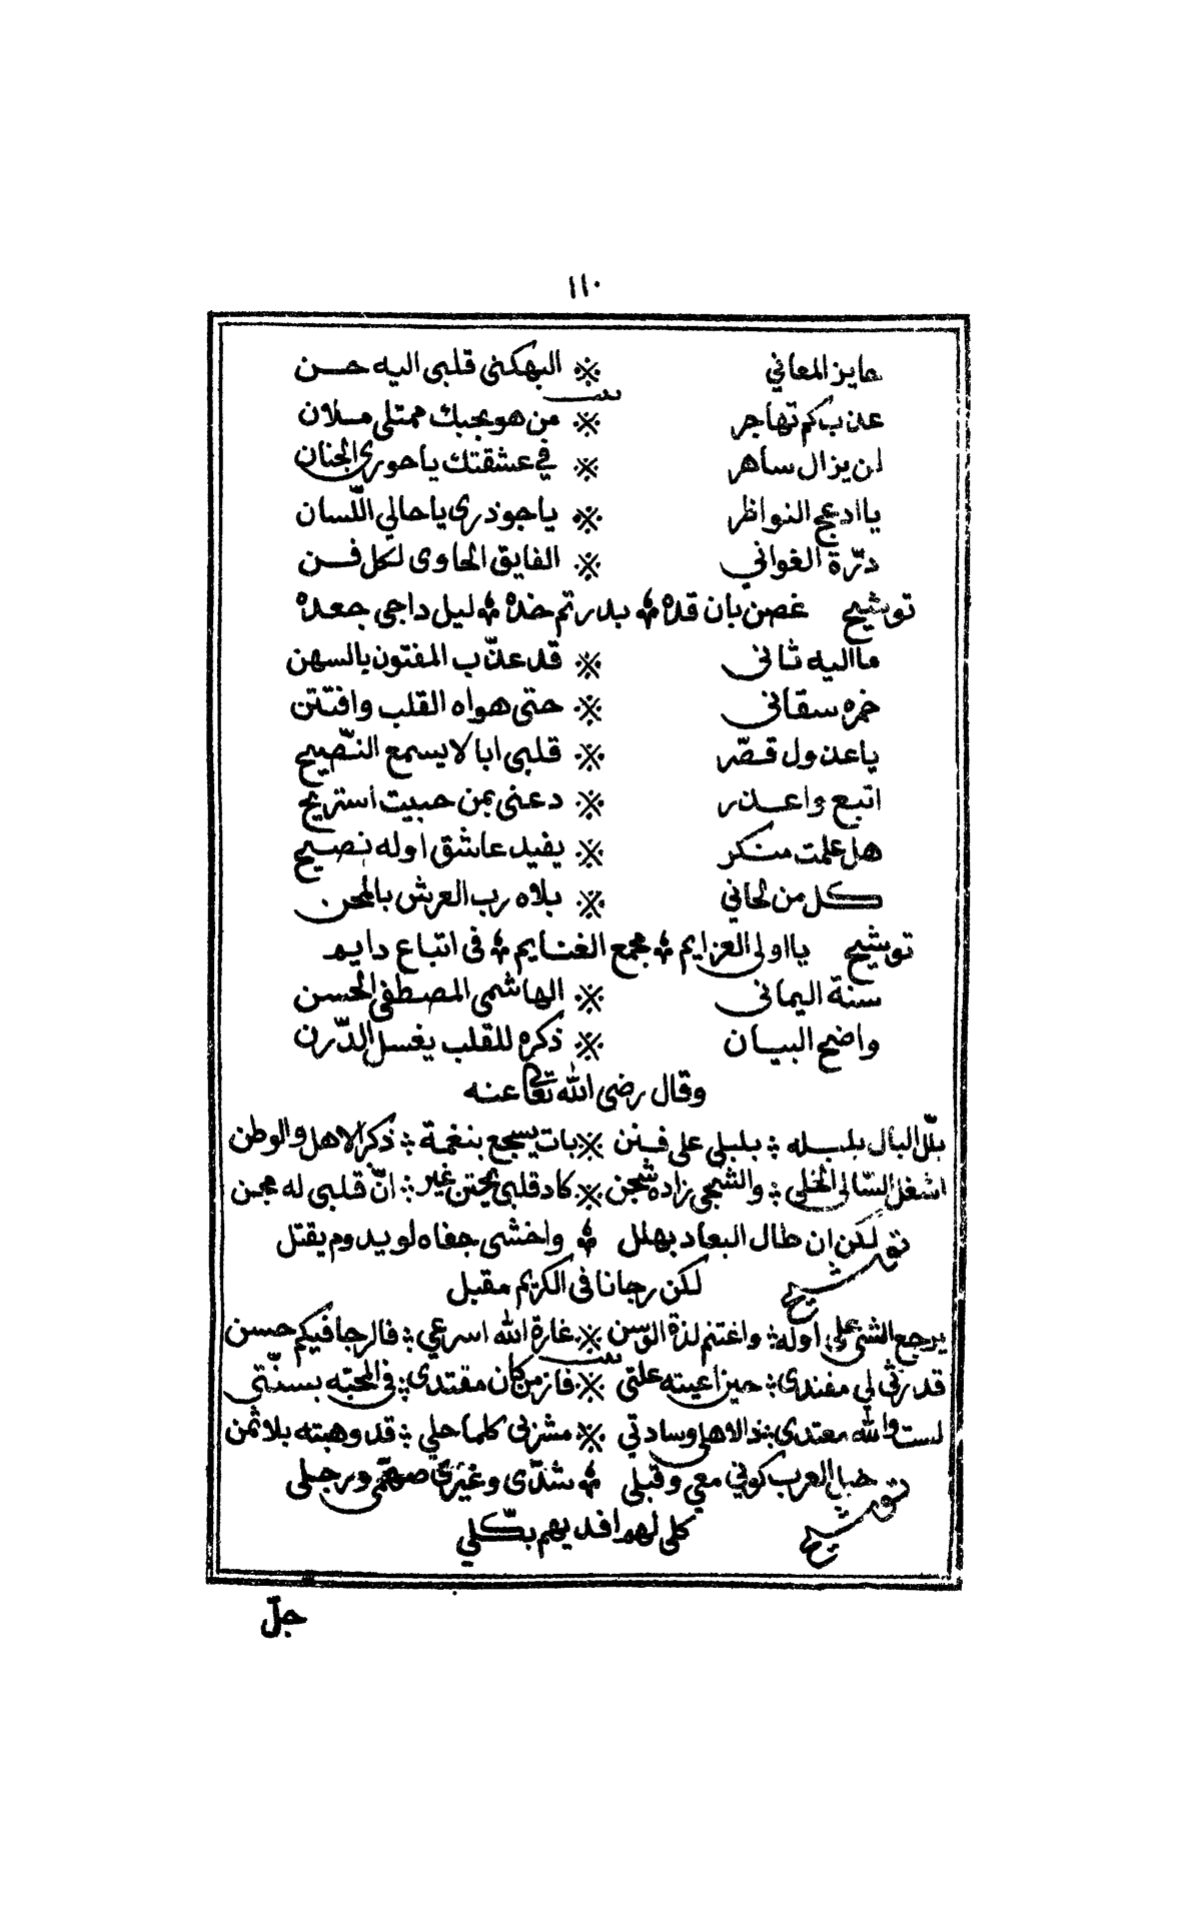 ١١٠
حايز المعاني ※ البهكني قلبي اليه حسن
عذب كم تهاجر ※ من هو بحبك ممتلي ملان
لن يزال ساهر ※ في عشقتك يا حوري الجنان
يا ادعج النواظر ※ يا جوذري يا حالي اللّسان
درّة الغواني ※ الفايق الحاوى لكل فن
توشيح غصن بان قده ؞ بدر تم خده ؞ ليل داجي جعده
ما اليه ثاني ※ قد عذّب المفتون بالسهن
خمره سقاني ※ حتى هواه القلب وافتتن
يا عذول قصّر ※ قلبي ابا لا يسمع النّصيح
اتبع واعذر ※ دعني بمن حبيت استريح
هل علمت منكر ※ يفيد عاشق اوله نصيح
كل من لحاني ※ بلاه رب العرش بالمحن
توشيح يا اولى العزايم ؞ مجمع الغنايم ؞ في اتباع دايم
سنة اليماني ※ الهاشمي المصطفى الحسن
واضح البيان ※ ذكره للقلب يغسل الدّرن
وقال رضى الله تعالى عنه
بلّل البال بلبله ؞ بلبلي على فنن ※ بات يسجع بنغمة ؞ ذكر الاهل والوطن
اشغل السّالي الخلي ؞ والشجي زاده شجن ※ كاد قلبي يحتن غير ؞ انّ قلبي له مجن
توشيح لكن ان طال البعاد بهلل ؞ واخشى جفاه لو يدوم يقتل
لكن رجانا في الكريم مقبل
يرجع الشي على اوله ؞ واغتنم لذة الوسن ※ غارة الله اسرعي ؞ فالرجا فيكم حسن
قد رثى لي مفندى ؞ حين اعيته علتي ※ فاز من كان مقتدى ؞ في المحبّه بسنّتي
لست والله معتدى ؞ ذا لاهلي وسادتي ※ مشربي كلما حلي ؞ قد وهبته بلا ثمن
توشيح خيل العرب كوني معي وقبلي ؞ شدّى وغيرى صهّمي ورجلي
كلي لهم افديهم بكّلي
جلّ